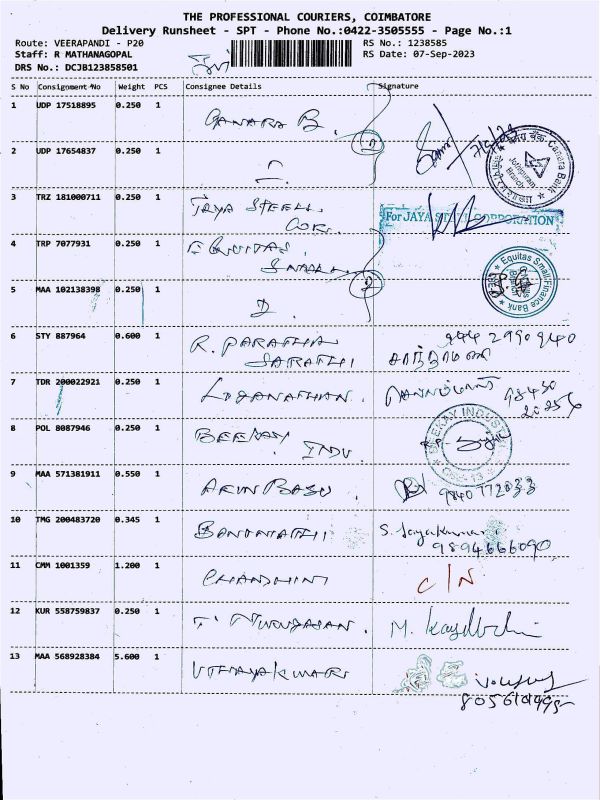 THE PROFESSIONAL COURIERS, COIMBATORE
Delivery Runsheet - SPT - Phone No.:0422-3505555 - Page No.:1
Route: VEERAPANDI - P20 RS No.: 1238585
Staff: R MATHANAGOPAL RS Date: 07-Sep-2023
DRS No.: DCJB123858501
S No Consignment No Weight PCS Consignee Details Signature
1 UDP 17518895 0.250 1 CANARA B.
2 UDP 17654837 0.250 1
Canara Bank
Jothipuram
Branch
3 TRZ 181000711 0.250 1 JAYA STEEL
COR.
For JAYA STEEL CORPORATION
4 TRP 7077931 0.250 1 EQUITAS
SMALL
5 MAA 102138398 0.250 1
Equitas Small Finance Bank
6 STY 887964 0.600 1 R. PARATHA
SARATHI
7 TDR 200022921 0.250 1 LOGANATHAN.
8 POL 8087946 0.250 1 BEEKAY INDU.
BEEKAY INDUST
9 MAA 571381911 0.550 1 ARUN BABU. 9840772033
10 TMG 200483720 0.345 1 S. Jayakumar
9894666090
11 CMM 1001359 1.200 1 CHANDHINI C/N
12 KUR 558759837 0.250 1 M.
13 MAA 568928384 5.600 1 UTHAYAKUMARI